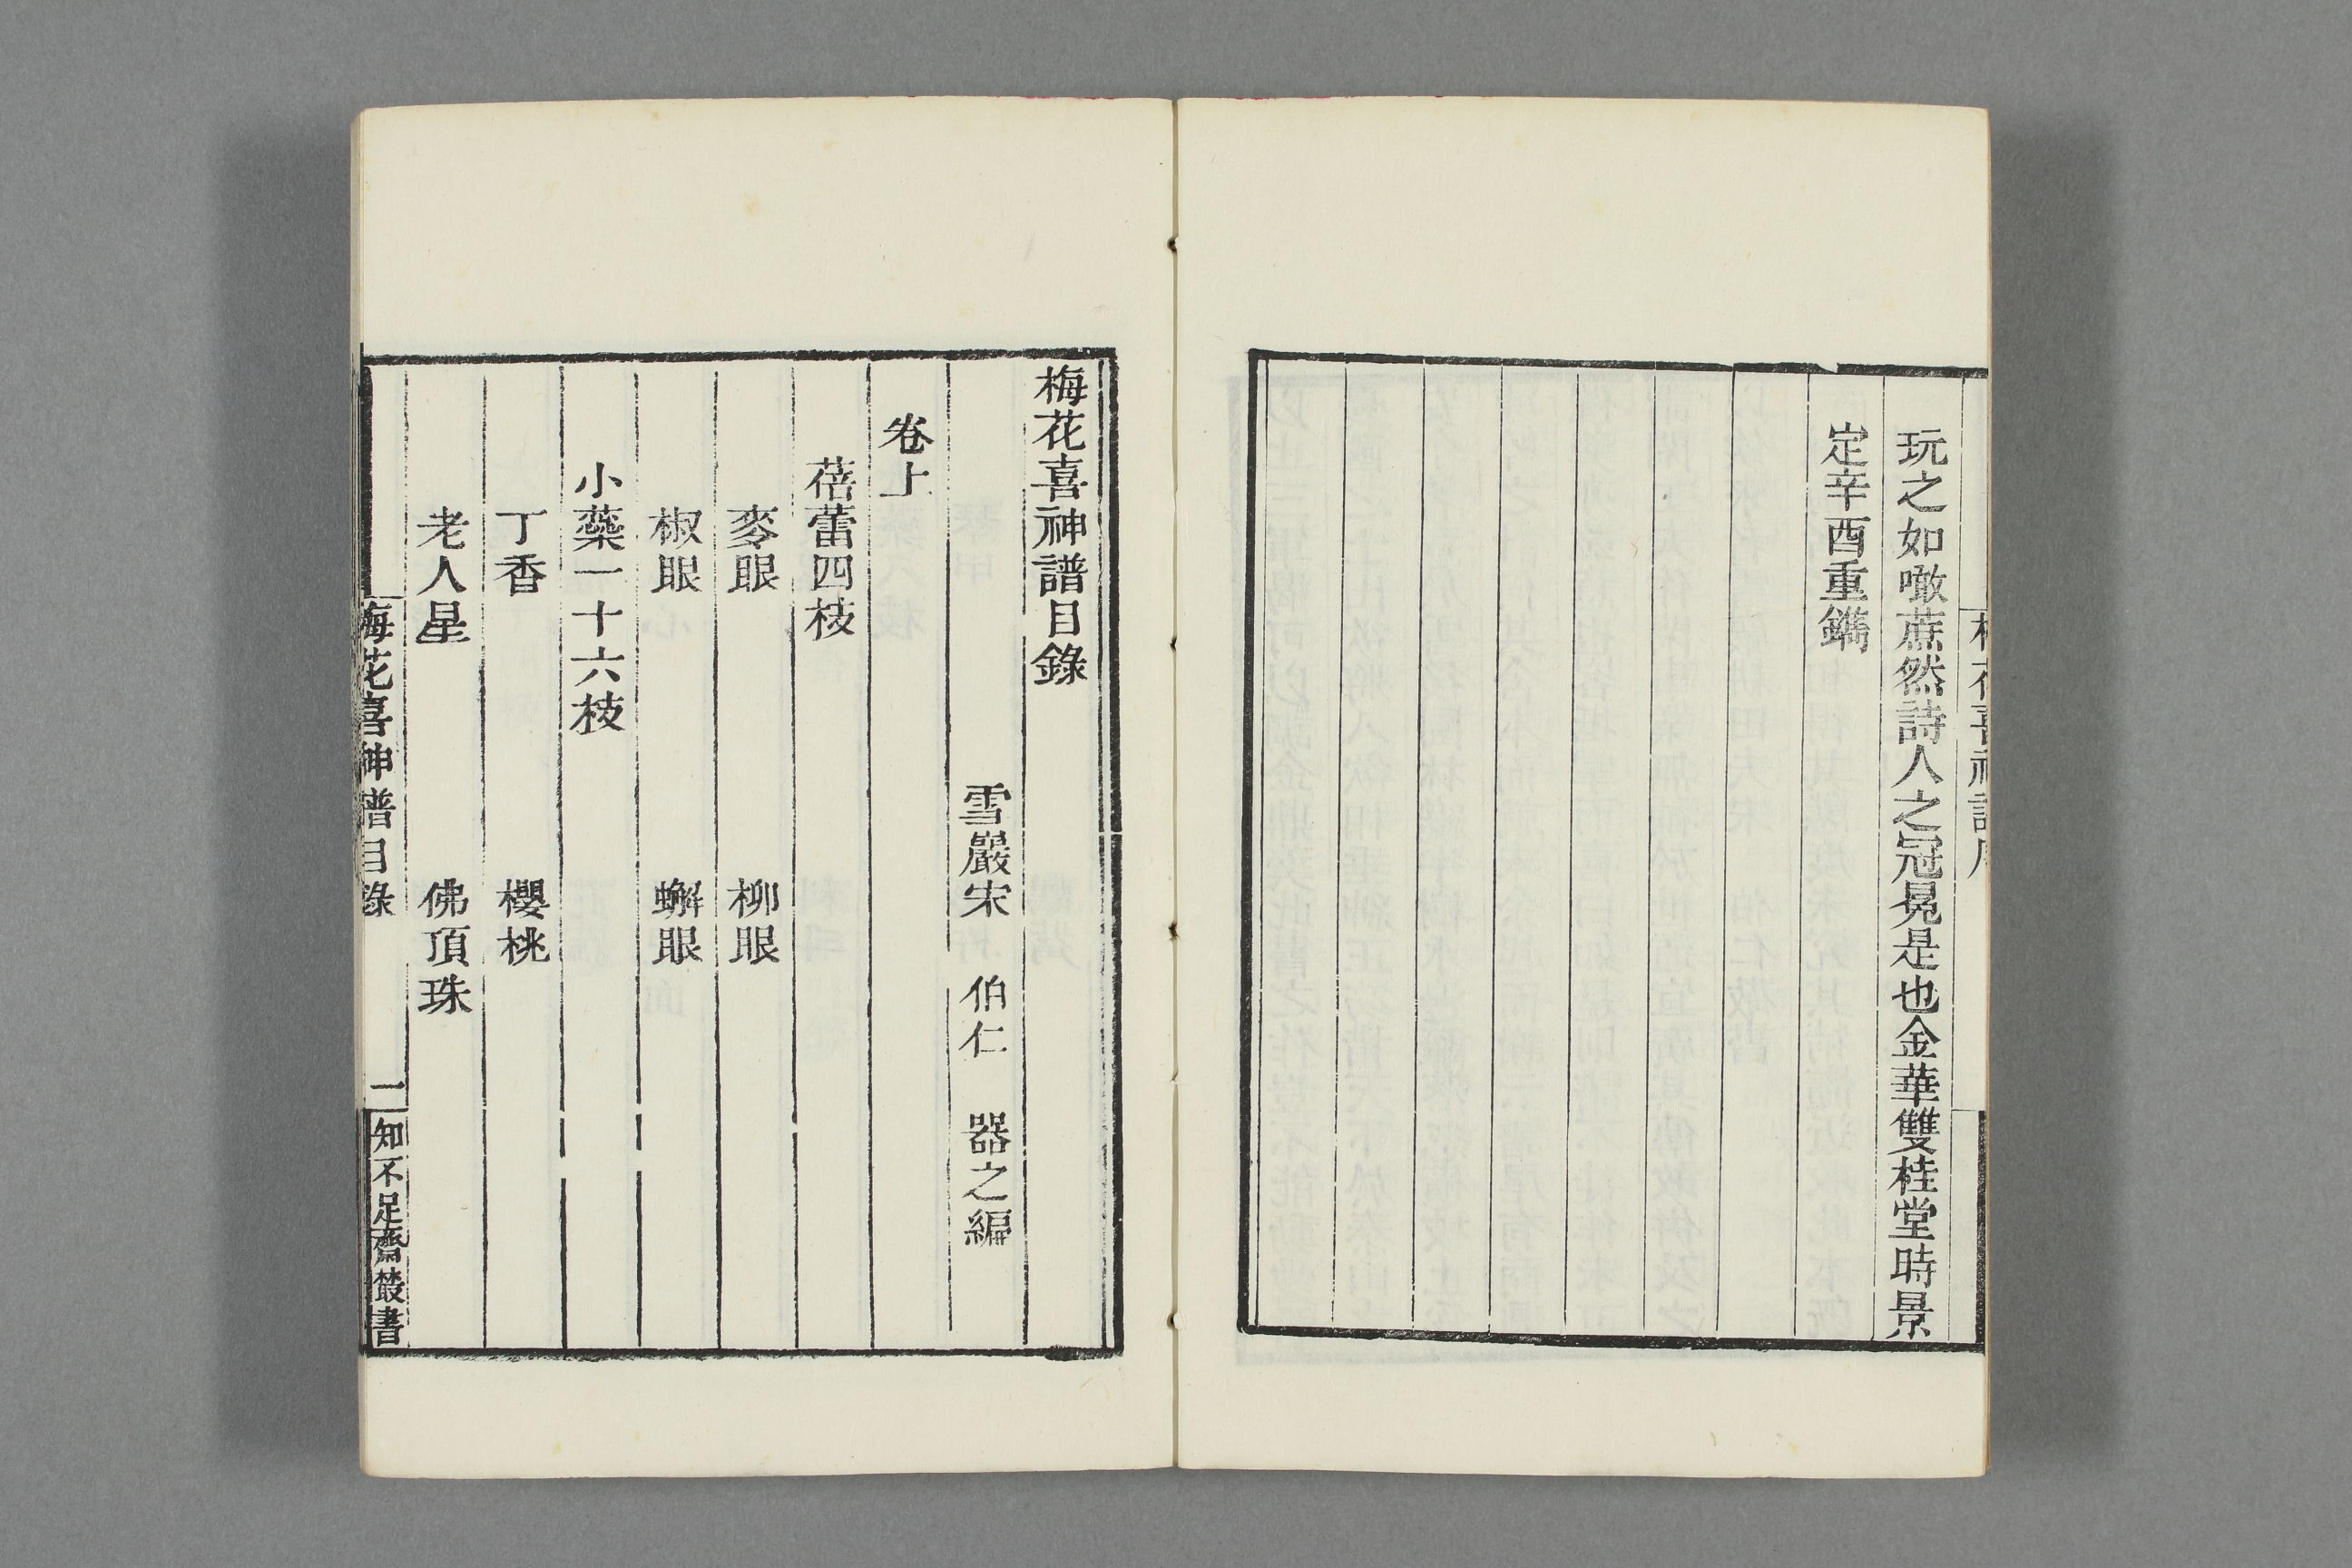 玩之如噉蔗然詩人之冠冕是也金華雙桂堂時景
定辛酉重鐫
梅花喜神譜目錄
雪巖宋　伯仁　器之編
卷上
蓓蕾四枝
麥眼　柳眼
椒眼　蠏眼
小蘂一十六枝
丁香　櫻桃
老人星　佛頂珠
梅花喜神譜目錄　一　知不足齋叢書